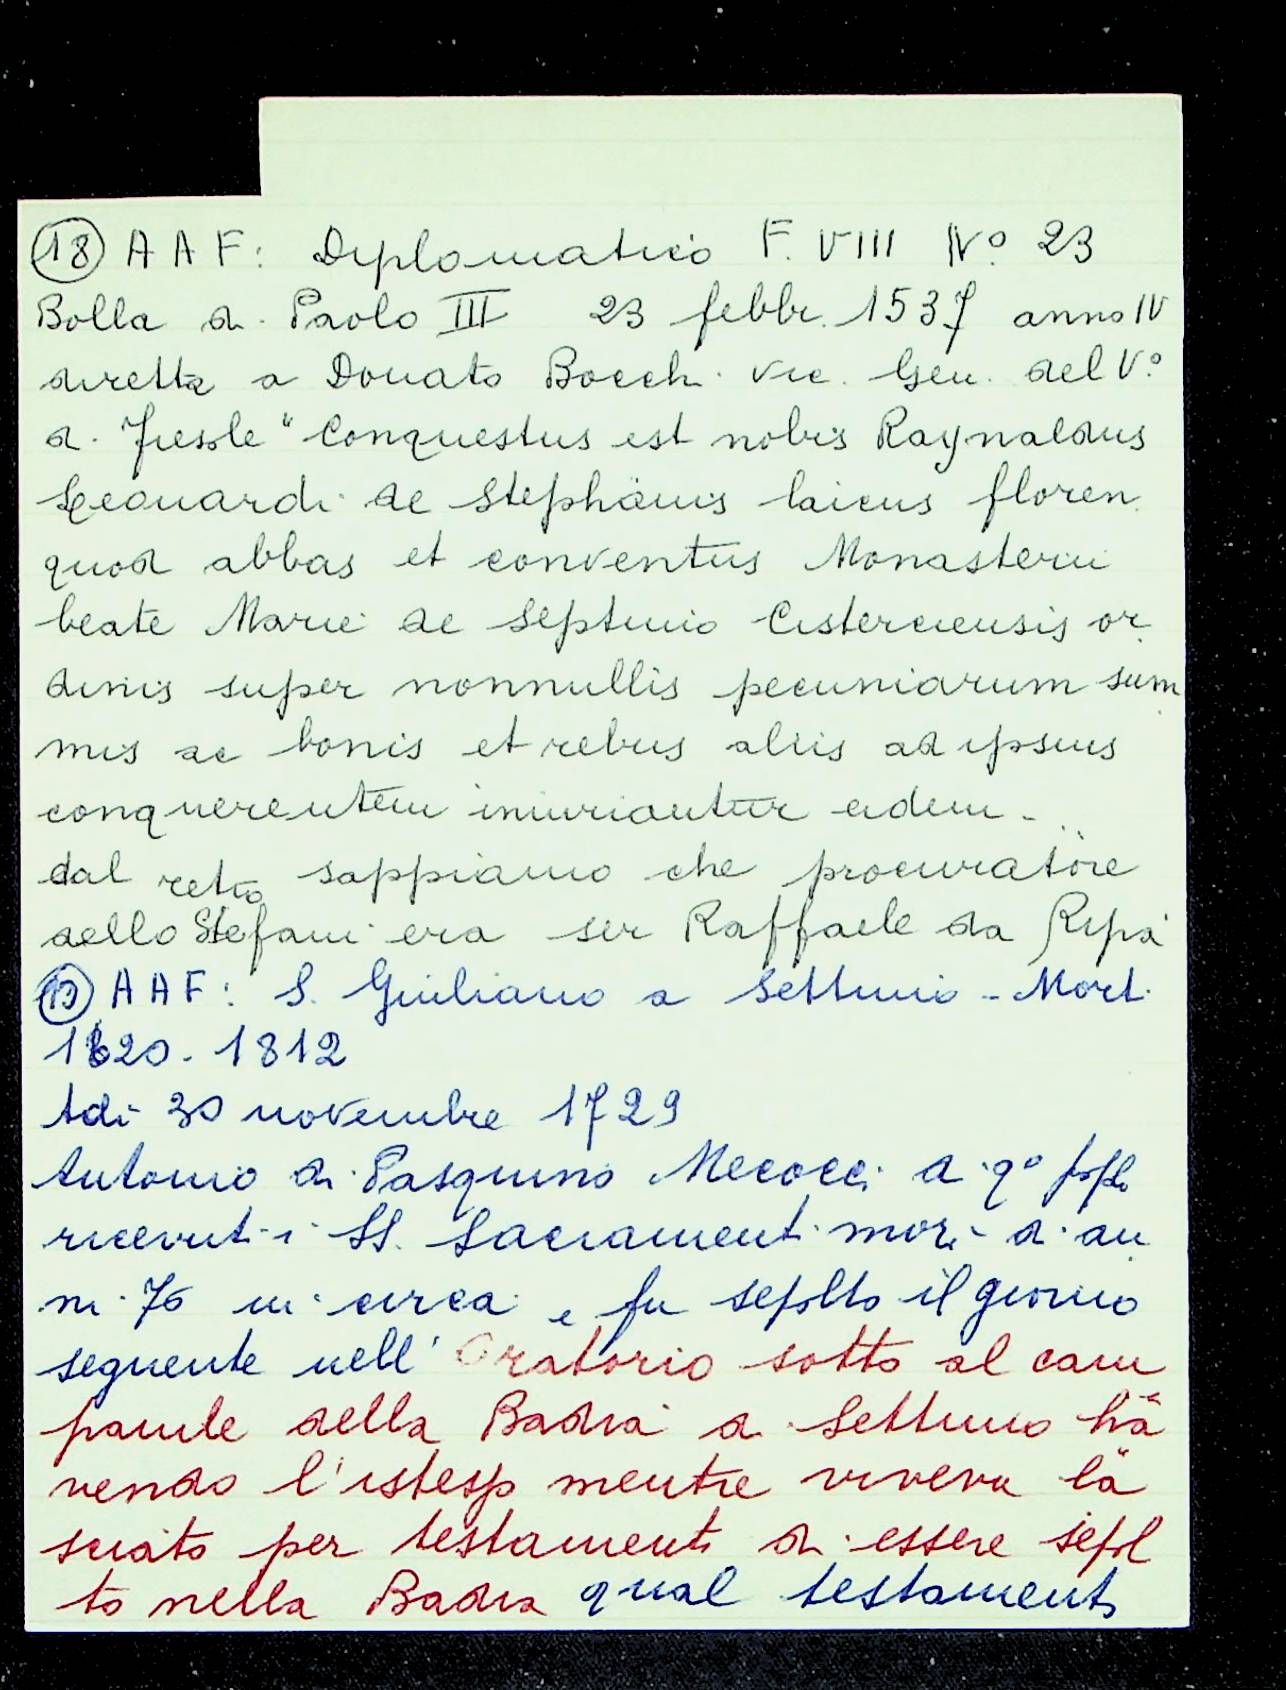 (18) A A F: Diplomatico F. VIII N.º 23
Bolla di Paolo III 23 febbr. 1537 anno IV
diretta a Donato Bocchi Vic. Gen. del V.º
di Fiesole "Conquestus est nobis Raynaldus
Leonardi de Stephanis laicus floren.
quod abbas et conventus Monasterii
beate Marie de Septimo Cisterciensis or
dinis super nonnullis pecuniarum sum
mis ac bonis et rebus aliis ad ipsius
conquerentem iniuriantur eidem.
dal retro sappiamo che procuratore
dello Stefani era ser Raffaele da Ripa
(19) A A F: S. Giuliano a Settimo - Mort.
1620 - 1812
Adi 30 novembre 1729
Antonio di Pasquino Mecocci di q.º popo
ricevuti i SS. Sacramenti morì di an
ni 76 in circa e fu sepolto il giorno
seguente nell' Oratorio sotto al cam
panile della Badia a Settimo ha
vendo l'istesso mentre viveva la
sciato per testamento di essere sepol
to nella Badia qual testamento